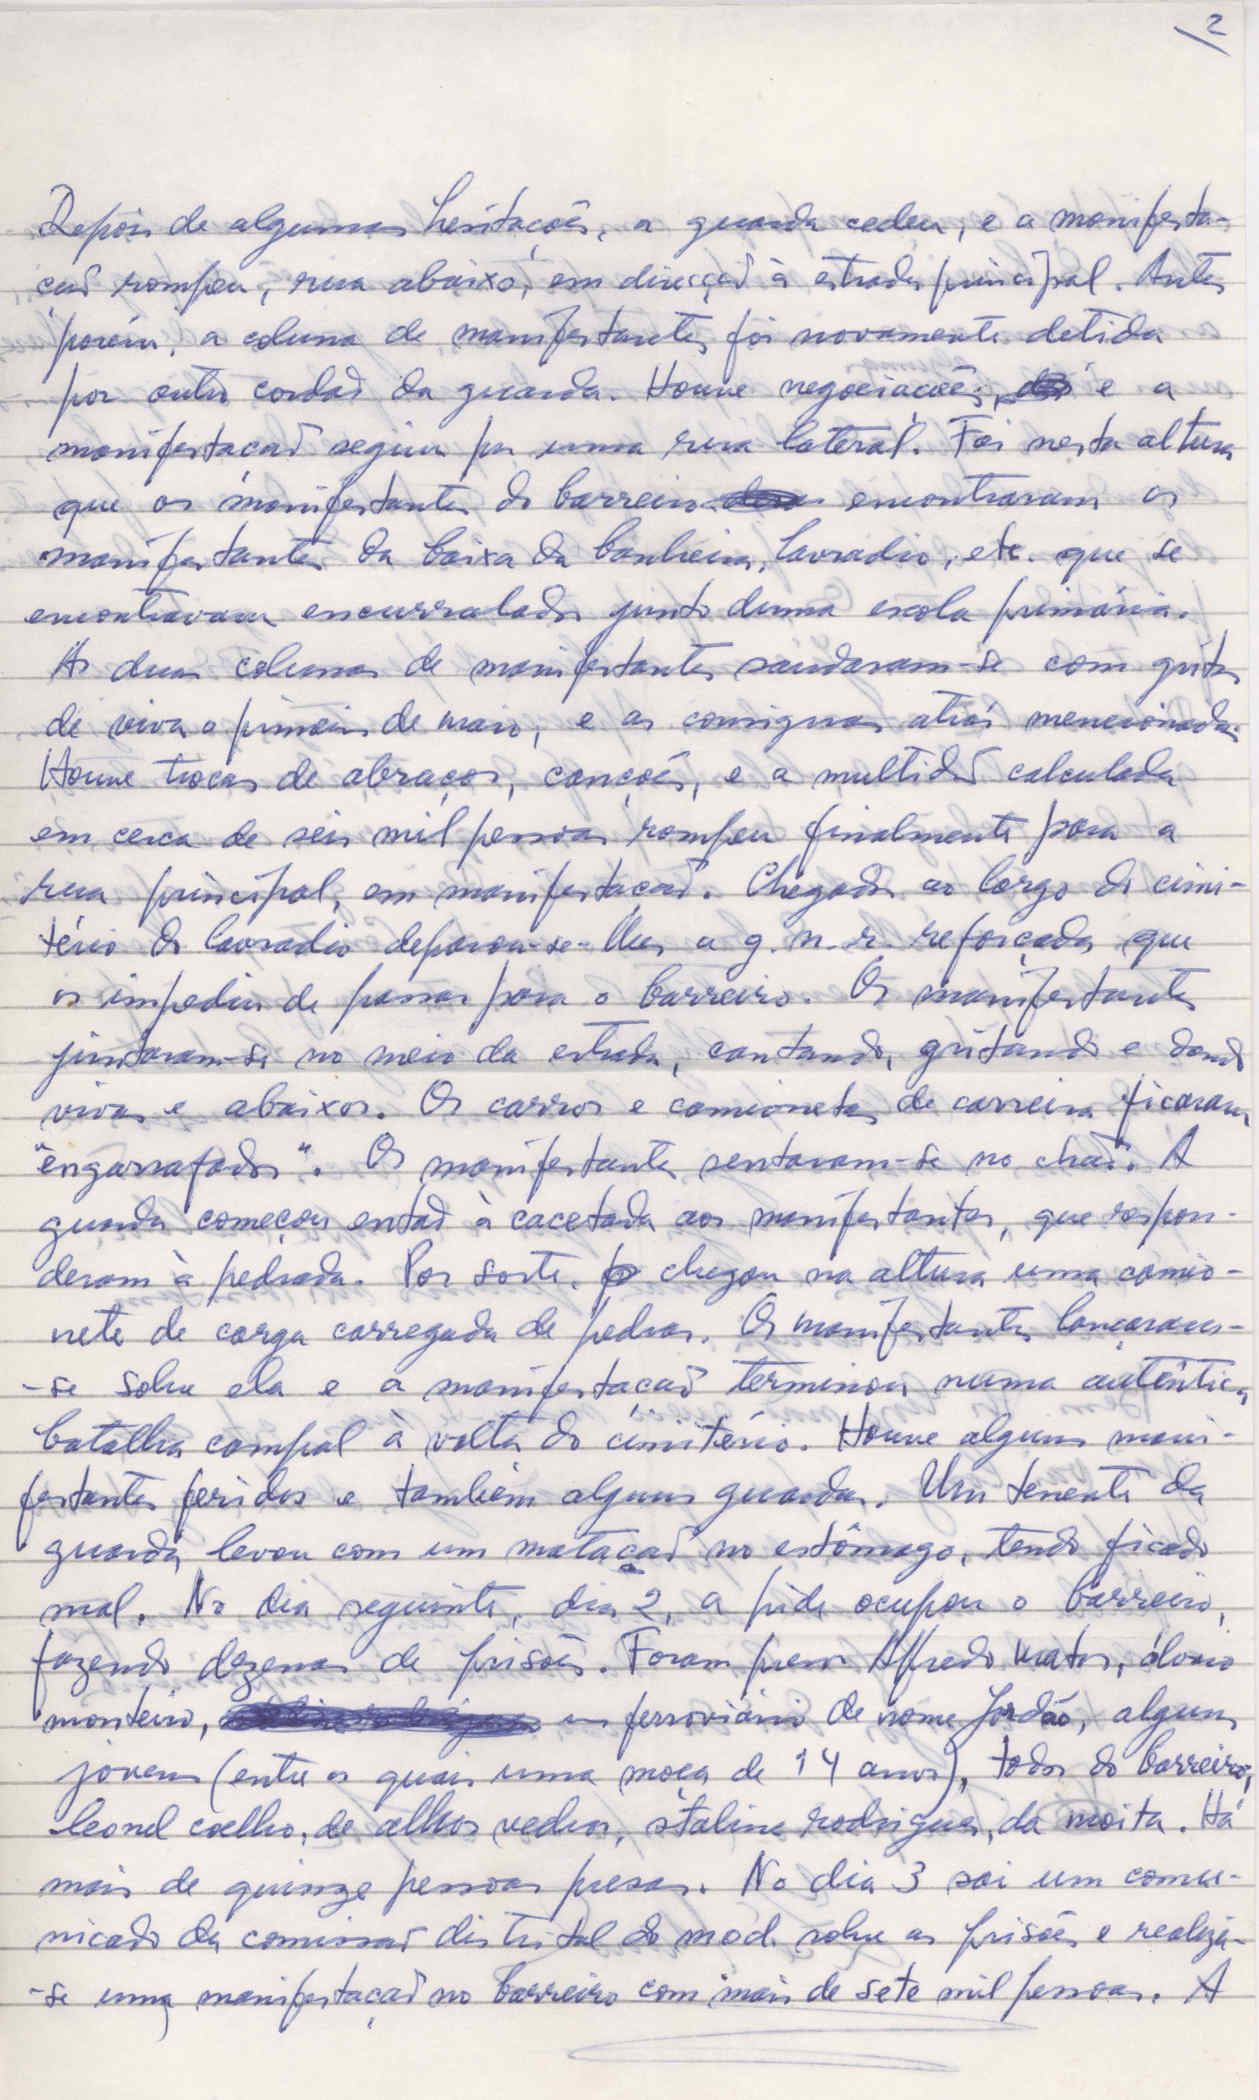 2
Depois de algumas hesitações, a guarda cedeu, e a manifesta-
ção rompeu, rua abaixo, em direcção à estrada principal. Antes
porém, a coluna de manifestantes foi novamente detida
por outro cordão da guarda. Houve negociações, e a
manifestação seguiu por uma rua lateral. Foi nesta altura
que os manifestantes do barreiro encontraram os
manifestantes da baixa da banheira, lavradio, etc. que se
encontravam encurralados junto duma escola primária.
As duas colunas de manifestantes saudaram-se com gritos
de viva o primeiro de maio, e as consignas atrás mencionadas.
Houve trocas de abraços, canções, e a multidão calculada
em cerca de seis mil pessoas rompeu finalmente para a
rua principal, em manifestação. Chegados ao largo do cimi-
tério do lavradio deparou-se-lhes a g.n.r. reforçada que
os impediu de passar para o barreiro. Os manifestantes
juntaram-se no meio da estrada, cantando, gritando e dando
vivas e abaixos. Os carros e camionetas de carreira ficaram
"engarrafados". Os manifestantes sentaram-se no chão. A
guarda começou então à cacetada aos manifestantes, que respon-
deram à pedrada. Por sorte, chegou na altura uma camio-
nete de carga carregada de pedras. Os manifestantes lançaram-
-se sobre ela e a manifestação terminou numa autêntica
batalha campal à volta do cimitério. Houve alguns mani-
festantes feridos e também alguns guardas. Um tenente da
guarda levou com um matacão no estômago, tendo ficado
mal. No dia seguinte, dia 2, a pide ocupou o barreiro,
fazendo dezenas de prisões. Foram presos Alfredo Matos, álvaro
monteiro, um ferroviário de nome Jordão, alguns
jovens (entre os quais uma moça de 14 anos), todos do barreiro,
leonel coelho, de alhos vedros, staline rodrigues, da moita. Há
mais de quinze pessoas presas. No dia 3 sai um comu-
nicado da comissão distrital do mod. sobre as prisões e realiza-
-se uma manifestação no barreiro com mais de sete mil pessoas. A